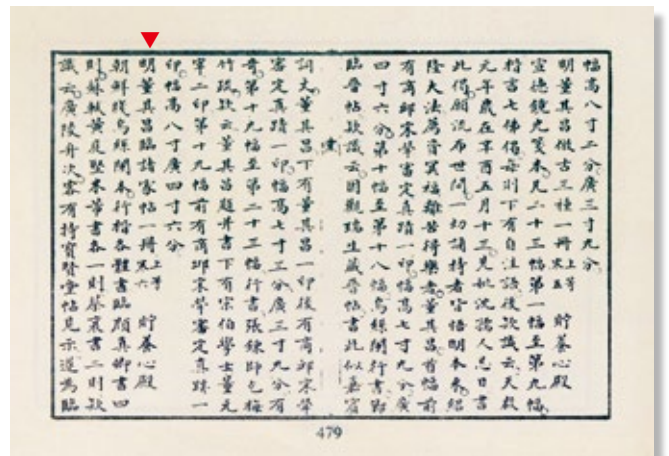 幅高八寸二分廣三寸九分
明董其昌倣古三種一冊 上等寒五 貯養心殿
宣德鏡光箋本凡二十三幅第一幅至第九幅
楷書七佛偈每則下有自注語後款識云天啟
元年歲在辛酉五月十三見姚沈孺人忌日書
此偈願流布世間一切誦持者皆悟明本來紹
隆大法薦資冥福離苦得樂者董其昌首幅前
有商邱宋犖審定真蹟一印幅高七寸九分廣
四寸六分第十幅至第十八幅烏絲闌行書節
臨晉帖款識云因觀瑞生藏晉帖書此似嘉賓
詞丈董其昌下有董其昌一印後有商邱宋犖
審定真蹟一印幅高七寸三分廣三寸九分有
奇第十九幅至第二十三幅行書張鍊師乞梅
竹跋款云董其昌題并書下有宗伯學士董元
宰二印第十九幅前有商邱宋犖審定真蹟一
印幅高八寸廣四寸六分
明董其昌臨諸家帖一冊 上等寒六 貯養心殿
朝鮮牋烏絲闌本行楷各體書臨顏真卿書四
則蘇軾黃庭堅米芾書各一則蔡襄書二則款
識云廣陵舟次客有持寶賢堂帖見示遂為臨
479